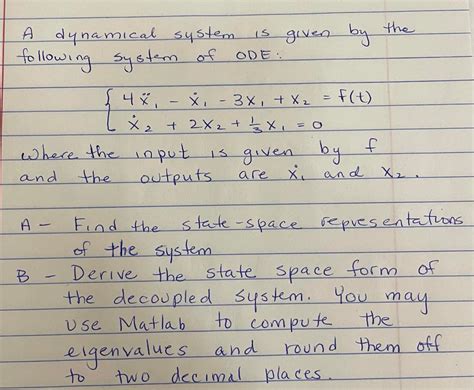 A dynamical system is given by the
following system of ODE:
{ 4ẍ₁ - ẋ₁ - 3x₁ + x₂ = f(t)
ẋ₂ + 2x₂ + ⅓x₁ = 0
where the input is given by f
and the outputs are ẋ₁ and x₂.
A - Find the state-space representations
of the system
B - Derive the state space form of
the decoupled system. You may
use Matlab to compute the
eigenvalues and round them off
to two decimal places.